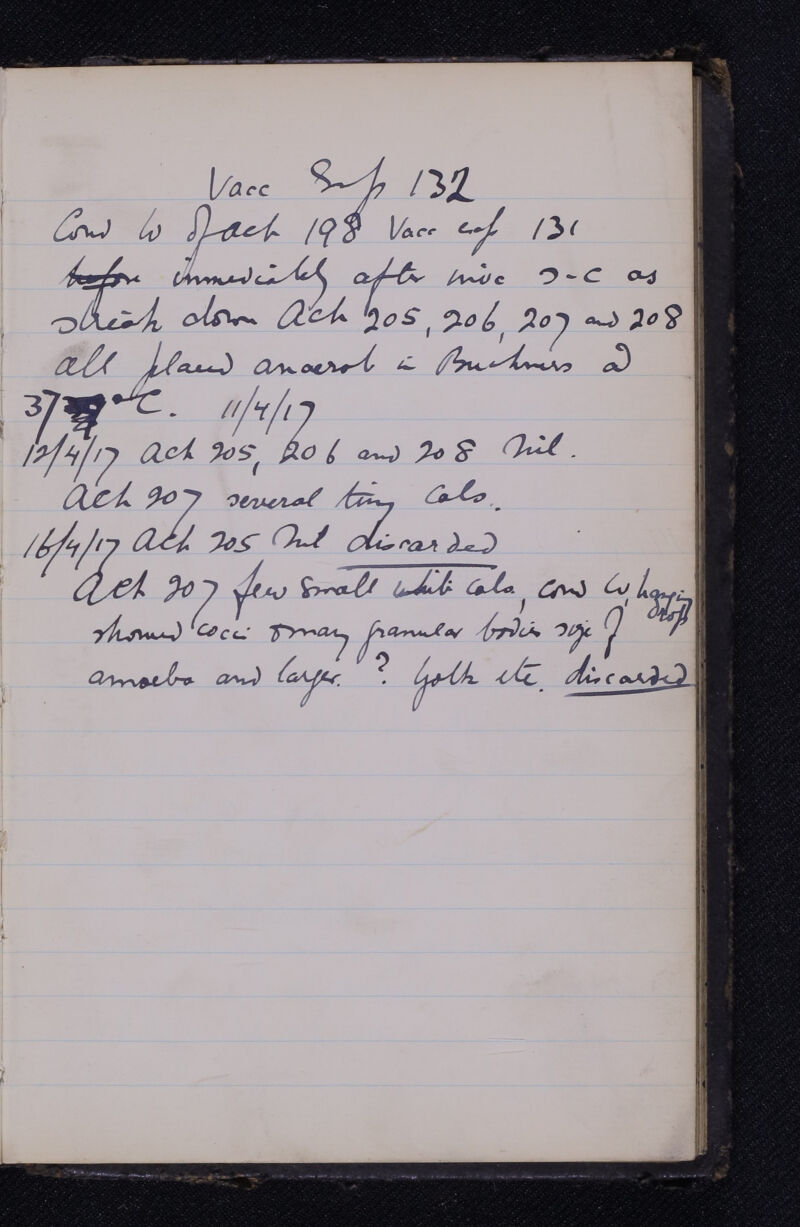 Vacc Exp 132
Cond W of Ach 198 Vacc exp 131
before immediately after inoc s-c as
streak down Ach 205, 206, 207 and 208
all placed anaerob in Buchners at
37°C. 11/4/17
12/4/17 Ach 205, 206 and 208 Nil.
Ach 207 several tiny Cols.
16/4/17 Ach 205 Nil discarded
Ach 207 few small white cols, cond W, hanging drops
showed cocci & many granular bodies size of
amoeba and larger. ? Yolk etc. discarded